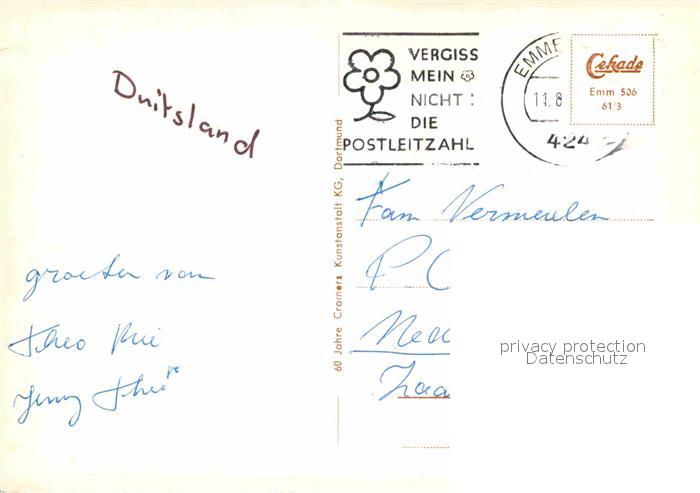 Duitsland
groeten van
Theo Rie
Jenny Theo
60 Jahre Cramers Kunstanstalt KG, Dortmund
VERGISS
MEIN
NICHT:
DIE
POSTLEITZAHL
EMME
11.8
424
Cekade
Emm 506
61/3
Fam Vermeulen
P
Ned
Zaa
privacy protection
Datenschutz